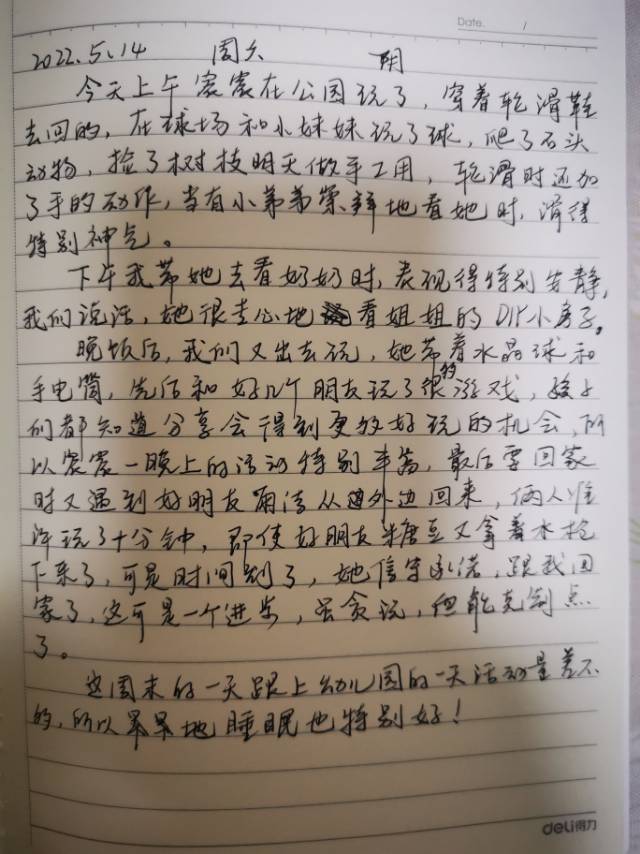 Date.      /
2022.5.14 周六 阴
今天上午宸宸在公园玩了，穿着轮滑鞋
去回的，在球场和小妹妹玩了球，爬了石头
动物，捡了树枝明天做手工用，轮滑时还加
了手的动作，当有小弟弟崇拜地看她时，滑得
特别神气。
下午我带她去看奶奶时，表现得特别安静，
我们说话，她很专心地看姐姐的DIY小房子。
晚饭后，我们又出去玩，她带着水晶球和
手电筒，先后和好几个朋友玩了很的游戏，孩子
们都知道分享会得到更多好玩的机会，所
以宸宸一晚上的活动特别丰富，最后要回家
时又遇到好朋友雨洁从外边回来，俩人准
许玩了十分钟，即使好朋友糖豆又拿着水枪
下来了，可是时间到了，她信守承诺，跟我回
家了，这可是一个进步，虽贪玩，但能克制点
了。
这周末的一天跟上幼儿园的一天活动量差不
的，所以早早地睡眠也特别好！
deli得力